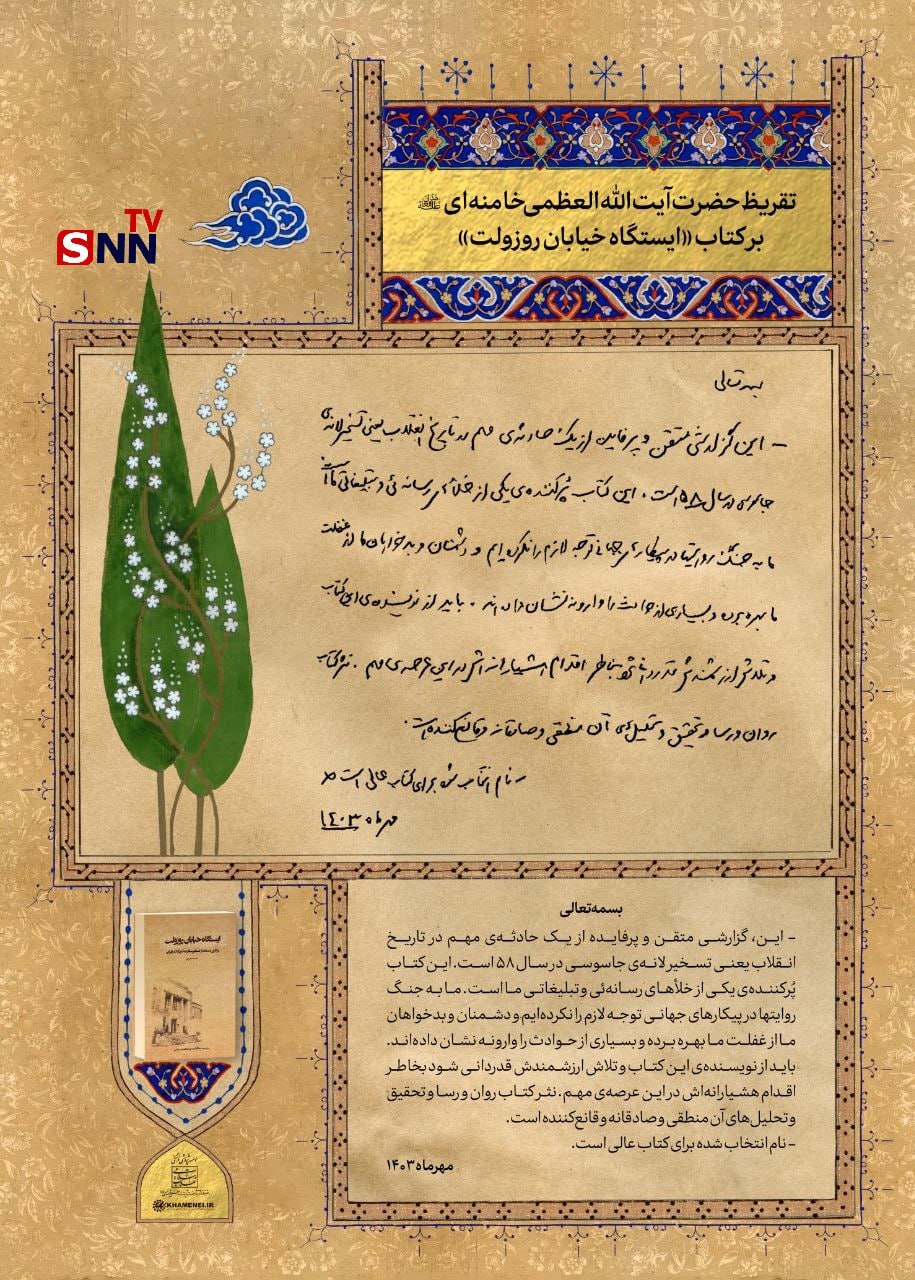 تقریظ حضرت آیت‌الله العظمی خامنه‌ای
بر کتاب «ایستگاه خیابان روزولت»
SNN TV
بسمه تعالی
- این گزارشی متقن و پرفایده از یک حادثه‌ی مهم در تاریخ انقلاب یعنی تسخیر لانه‌ی
جاسوسی در سال ۵۸ است. این کتاب پُرکننده‌ی یکی از خلأهای رسانه‌ئی و تبلیغاتی ما است
ما به جنگ روایتها در پیکارهای جهانی توجه لازم را نکرده‌ایم و دشمنان و بدخواهان ما از غفلت
ما بهره برده و بسیاری از حوادث را وارونه نشان داده‌اند. باید از نویسنده‌ی این کتاب
و تلاش ارزشمندش قدردانی شود بخاطر اقدام هشیارانه‌اش در این عرصه‌ی مهم. نثر کتاب
روان و رسا و تحقیق و تحلیل‌های آن منطقی و صادقانه و قانع‌کننده است.
- نام انتخاب شده برای کتاب عالی است
مهرماه ۱۴۰۳
ایستگاه خیابان روزولت
بسمه‌تعالی
- این، گزارشی متقن و پرفایده از یک حادثه‌ی مهم در تاریخ
انقلاب یعنی تسخیر لانه‌ی جاسوسی در سال ۵۸ است. این کتاب
پُرکننده‌ی یکی از خلأهای رسانه‌ئی و تبلیغاتی ما است. ما به جنگ
روایتها در پیکارهای جهانی توجه لازم را نکرده‌ایم و دشمنان و بدخواهان
ما از غفلت ما بهره برده و بسیاری از حوادث را وارونه نشان داده اند.
باید از نویسنده‌ی این کتاب و تلاش ارزشمندش قدردانی شود بخاطر
اقدام هشیارانه‌اش در این عرصه‌ی مهم. نثر کتاب روان و رسا و تحقیق
و تحلیل‌های آن منطقی و صادقانه و قانع‌کننده است.
- نام انتخاب شده برای کتاب عالی است.
مهرماه ۱۴۰۳
KHAMENEI.IR